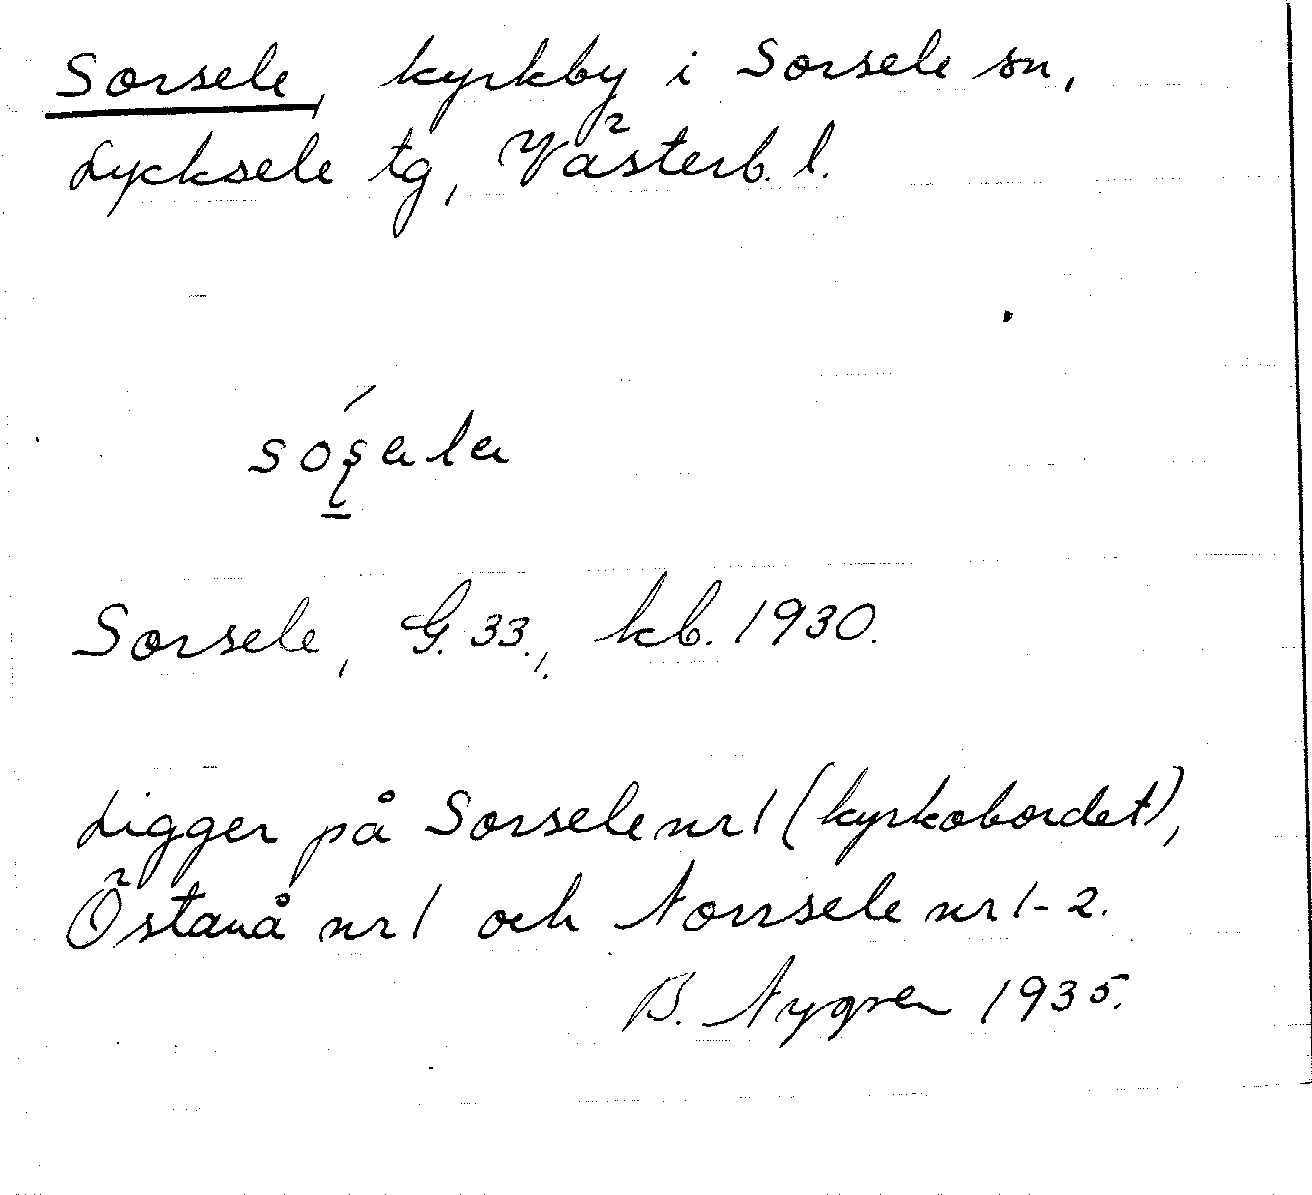 Sorsele, kyrkby i Sorsele sn,
Lycksele tg, Västerb. l.
só̱ʂala
Sorsele, G. 33., kb. 1930.
Ligger på Sorsele nr 1 (kyrkobordet),
Östanå nr 1 och Norrsele nr 1-2.
B. Nygren 1935.